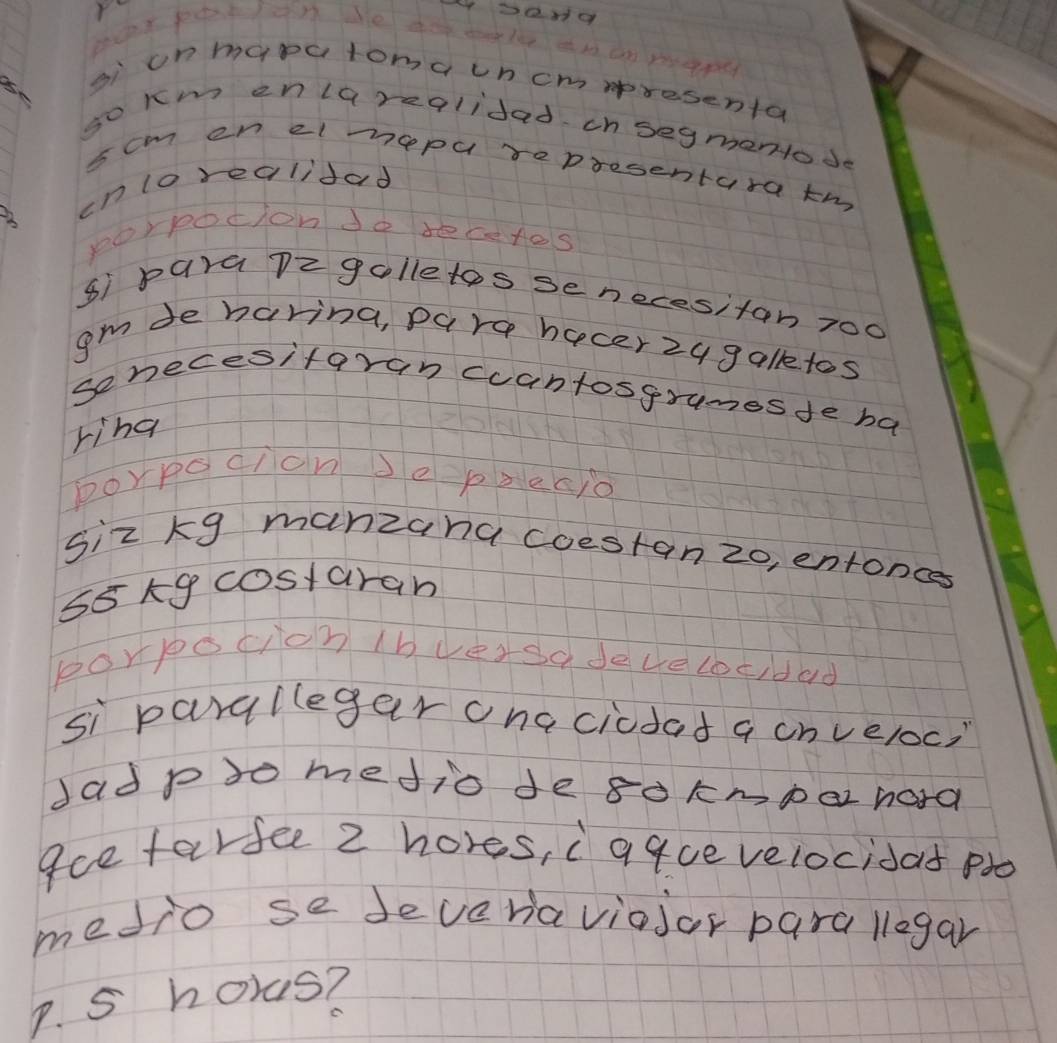 porporcion de escala en un mapa
si un mapa toma un cm representa
50 Km en la realidad. un segmento de
5 cm en el mapa representara km
en lo realidad
porpocion de recetas
si para 12 galletas se necesitan 200
gm de harina, para hacer 24 galletas
se necesitaran cuantos grames de ha
rina
porpocion de precio
si 2 kg manzana coestan 20, entonces
55 kg costaran
porpocion inversa de velocidad
si para llegar una ciudad a un veloci
dad promedio de 80 km por hora
que tardee 2 hores, i a que velocidad pro
medio se deveria viajar para llegar
1.5 horas?